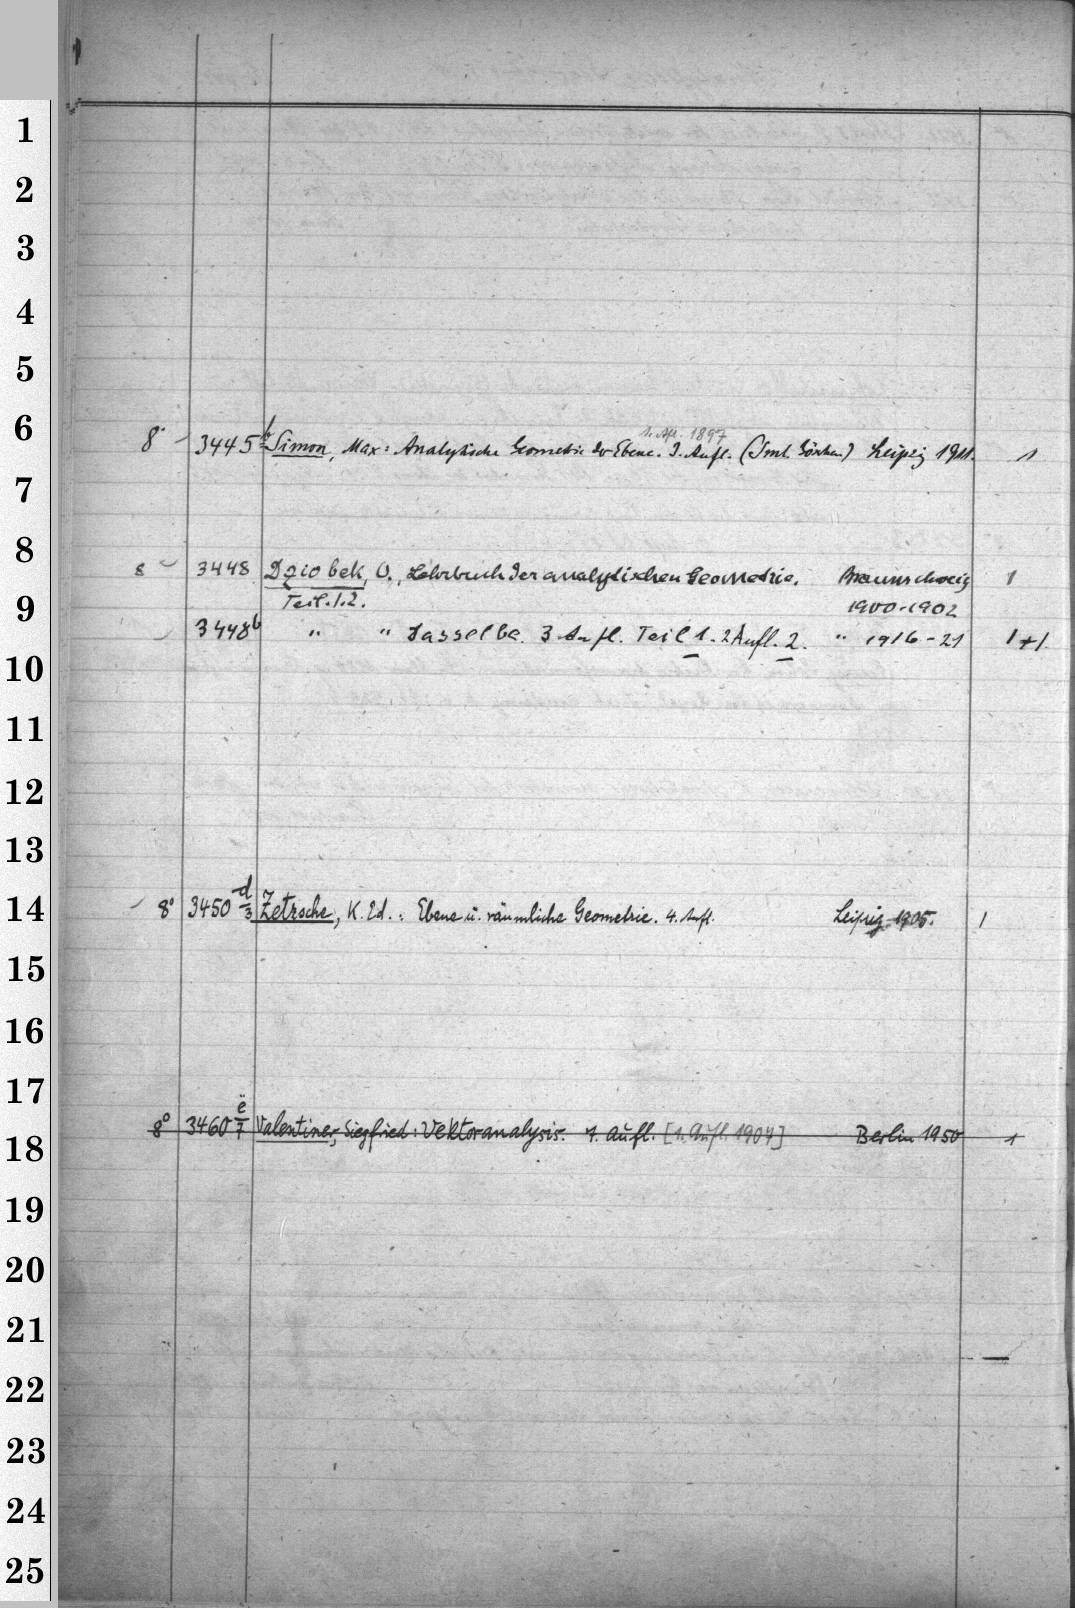 1
2
3
4
5
6
1. Afl. 1897
8° 3445 b Simon, Max: Analytische Geometrie der Ebene. 3. Aufl. (Sml. Göschen) Leipzig 1911. 1
7
8
8 3448 Dziobek, O., Lehrbuch der analytischen Geometrie. Braunschweig 1
9
Teil. 1.2. 1900-1902
3448b " " Dasselbe. 3 Aufl. Teil 1. 2 Aufl. 2. " 1916-21 1+1
10
11
12
13
14
8° 3450 d/3 Zetzsche, K. Ed.: Ebene u. räumliche Geometrie. 4. Aufl. Leipzig 1905. 1
15
16
17
8° 3460 e/7 Valentiner, Siegfried: Vektoranalysis. 7. Aufl. [1. Aufl. 1907] Berlin 1950 1
18
19
20
21
22
23
24
25